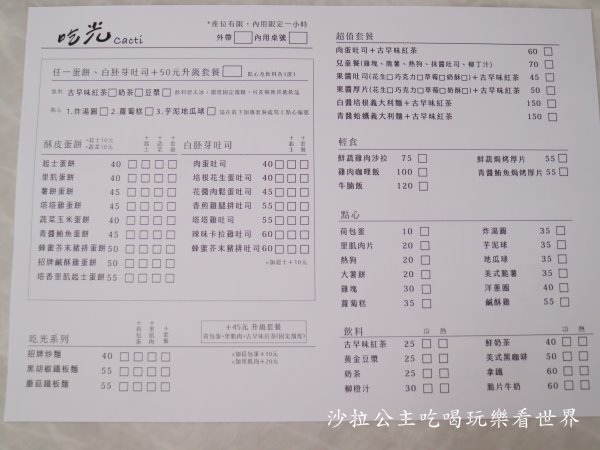 吃光 cacti
*座位有限，內用限定一小時
外帶 內用桌號
任一蛋餅、白胚芽吐司+50元升級套餐
點心及飲料各1選1
飲料 古早味紅茶 奶茶 豆漿
點心 1.炸湯圓 2.蘿蔔糕 3.芋泥地瓜球
請在底下加購套餐處寫上點心編號
酥皮蛋餅
+起士10元
+蔬菜10元
+起士 +蔬菜 +套餐
起士蛋餅 40
里肌蛋餅 40
薯餅蛋餅 45
塔塔雞蛋餅 45
蔬菜玉米蛋餅 40
青醬鮪魚蛋餅 45
蜂蜜芥末豬排蛋餅 50
招牌鹹酥雞蛋餅 50
塔香里肌起士蛋餅 55
白胚芽吐司
+起士 +套餐
肉蛋吐司 40
培根花生蛋吐司 40
花醬肉鬆蛋吐司 45
香煎雞腿排吐司 50
塔塔雞吐司 50
辣味卡拉雞吐司 60
蜂蜜芥末豬排吐司 60
*加起士+10元
吃光系列
+荷包蛋 +里肌肉 +套餐
+45元 升級套餐
荷包蛋+里肌肉+古早味紅茶(固定甜度)
招牌炒麵 40
黑胡椒鐵板麵 55
蘑菇鐵板麵 55
*加荷包蛋+10元
*加里肌肉+20元
超值套餐
肉蛋吐司+古早味紅茶 60
兒童餐(雞塊、脆薯、熱狗、抹醬吐司、柳丁汁) 70
果醬吐司(花生 巧克力 草莓 奶酥)+古早味紅茶 45
果醬厚片(花生 巧克力 草莓 奶酥)+古早味紅茶 50
白醬培根義大利麵+古早味紅茶 150
青醬蛤蠣義大利麵+古早味紅茶 150
輕食
鮮蔬雞肉沙拉 75
雞肉咖哩飯 100
牛腩飯 120
鮮蔬焗烤厚片 55
青醬鮪魚焗烤厚片 55
點心
荷包蛋 10
里肌肉片 20
熱狗 20
大薯餅 20
雞塊 30
蘿蔔糕 35
炸湯圓 35
芋泥球 35
地瓜球 35
美式脆薯 35
洋蔥圈 40
鹹酥雞 55
飲料
冷 熱
古早味紅茶 25
黃金豆漿 25
奶茶 25
柳橙汁 30
冷 熱
鮮奶茶 40
美式黑咖啡 50
拿鐵 60
脆片牛奶 60
沙拉公主吃喝玩樂看世界